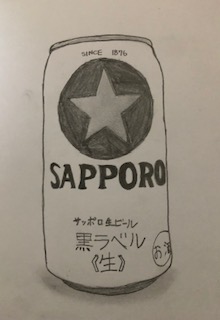 SINCE 1876
SAPPORO
サッポロ生ビール
黒ラベル
《生》
お酒